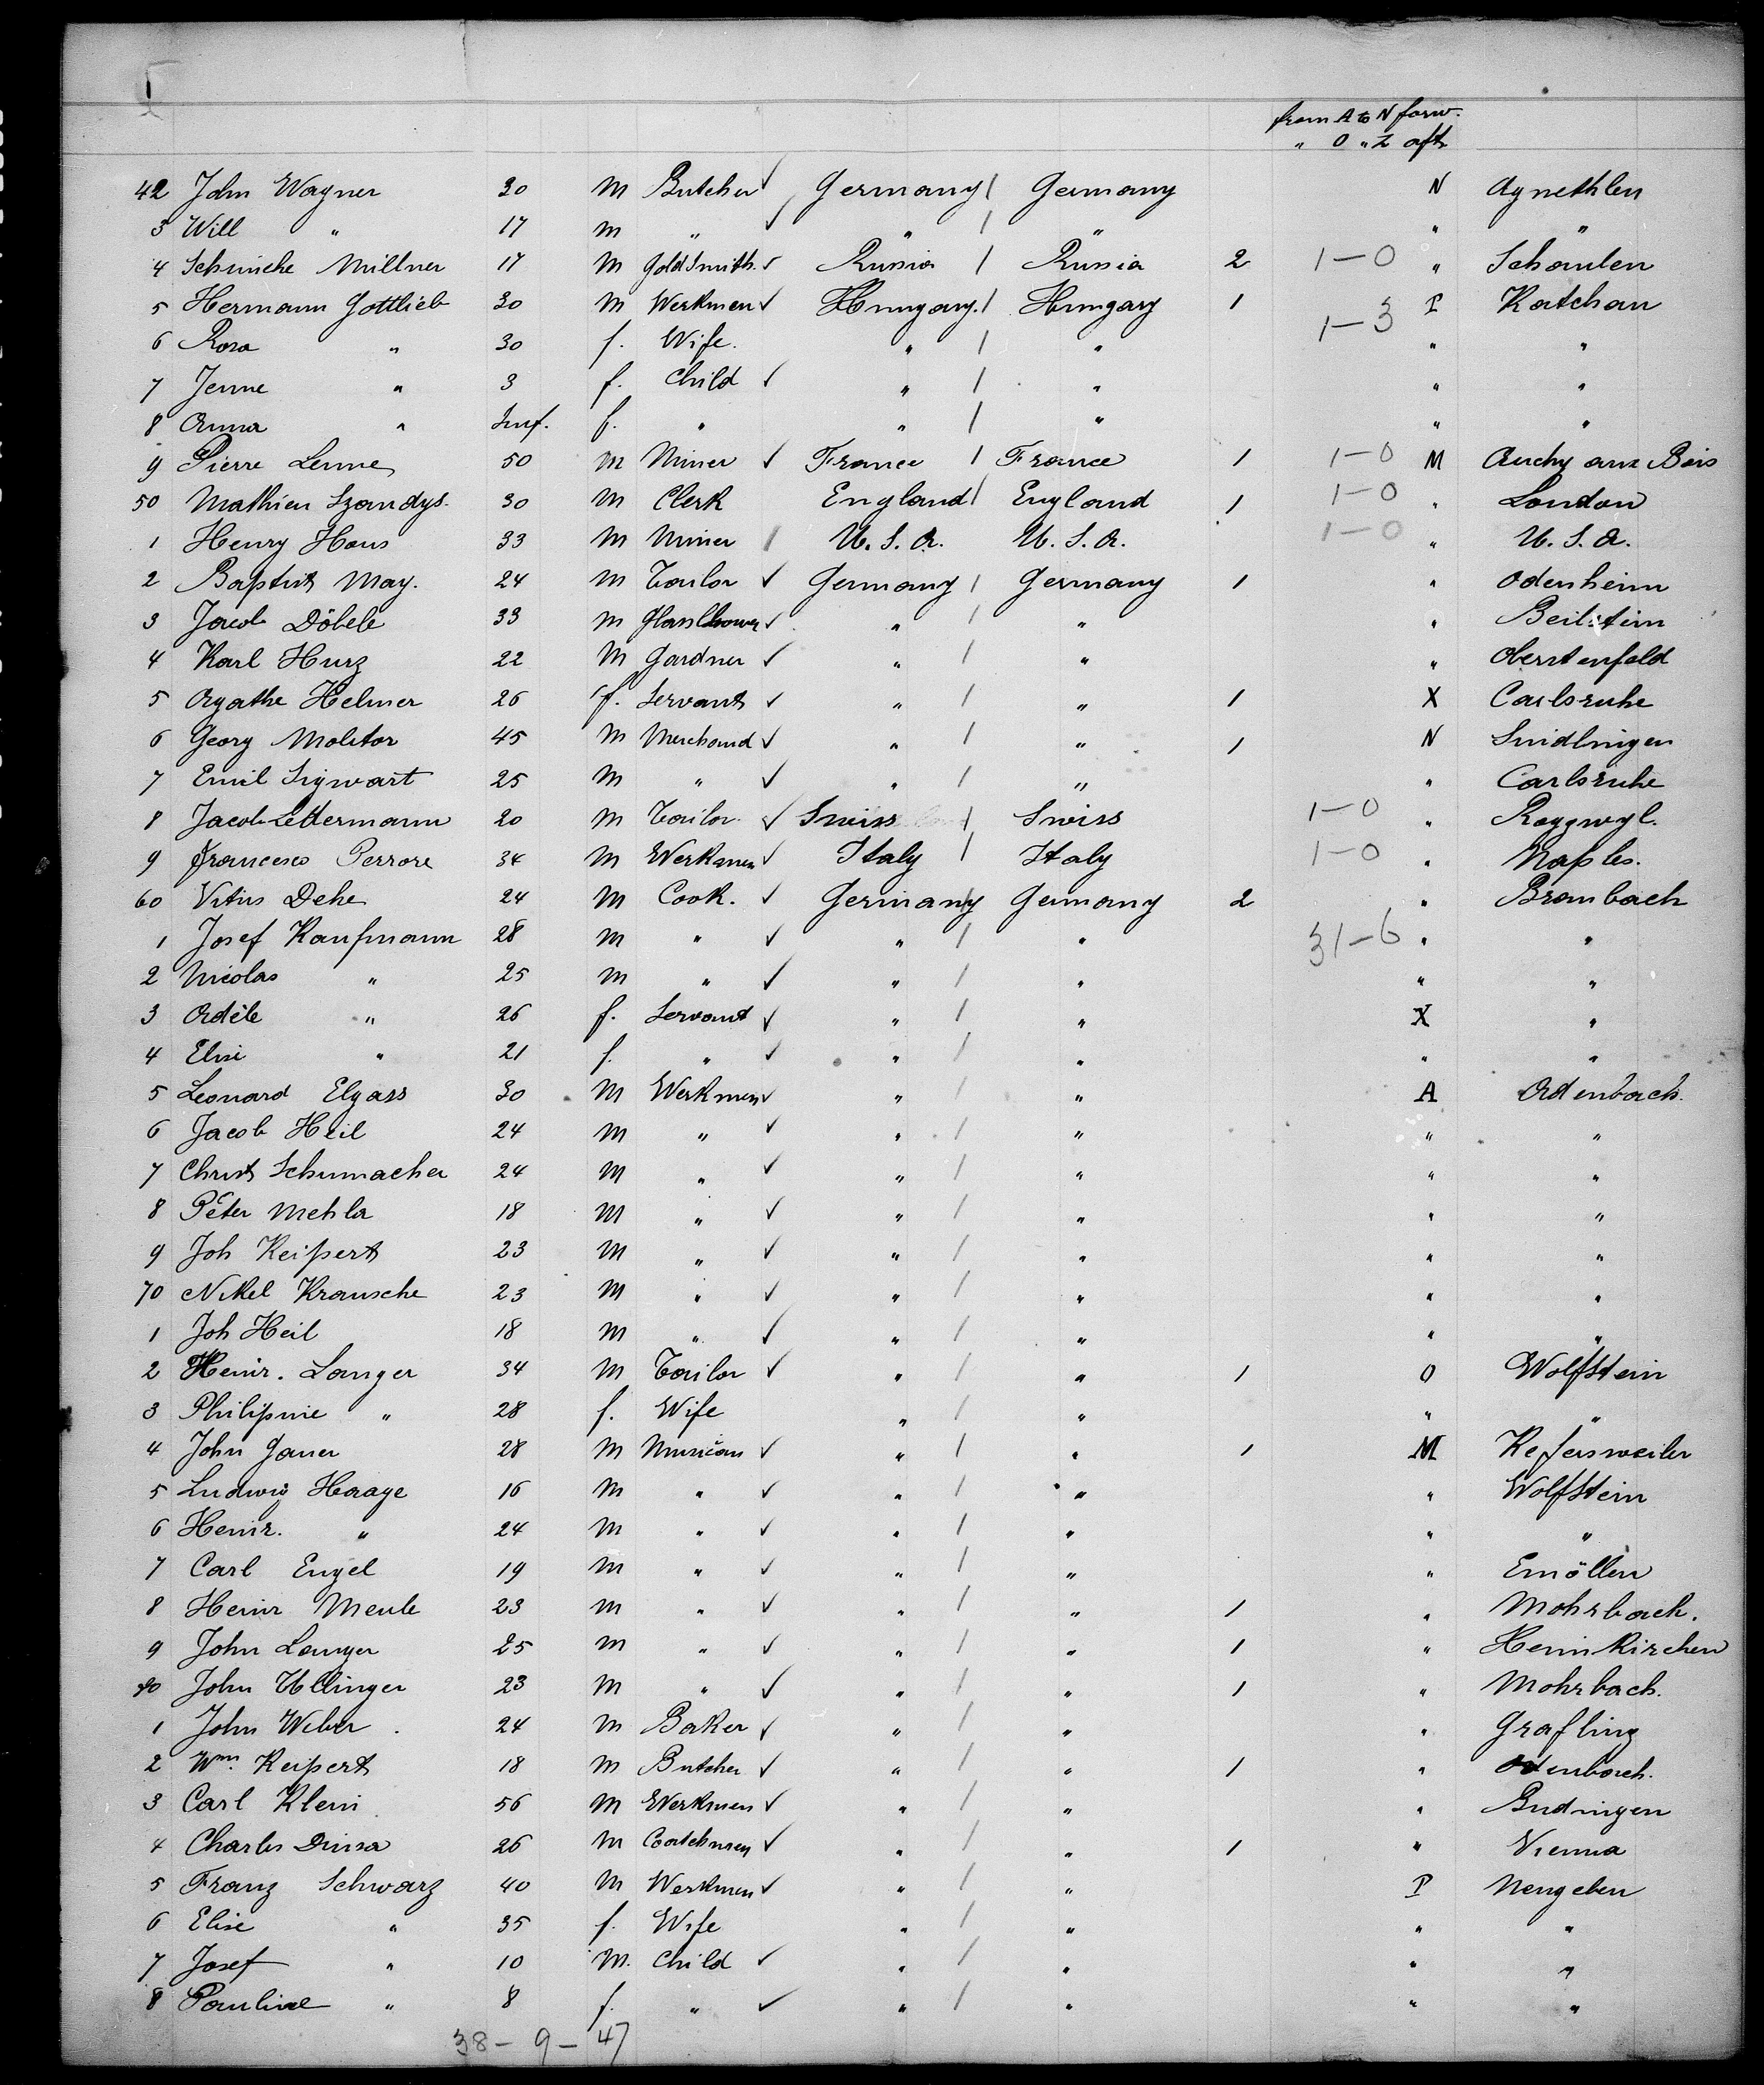 1
from A to N forw.
" O " Z aft
42 John Wagner 30 m Butcher ✓ Germany / Germany N Agnethlen
3 Will " 17 m " ✓ " / " " "
4 Schmiche Millner 17 m Goldsmith ✓ Russia / Russia 2 1-0 " Schaulen
5 Hermann Gottlieb 30 m Werkmen ✓ Hungary / Hungary 1 1-3 I Katchau
6 Rosa " 30 f. Wife. " / " " "
7 Jenne " 3 f. Child ✓ " / " " "
8 Anna " Inf. f. " " / " " "
9 Pierre Lenne 50 m Miner ✓ France / France 1 1-0 M Auchy aux Bois
50 Mathieu Szandys. 30 m Clerk England / England 1 1-0 " London
1 Henry Hous 33 m Miner / U.S.A. U.S.A. 1-0 " U.S.A.
2 Baptist May. 24 m Tailor ✓ Germany / Germany 1 " Odenheim
3 Jacob Döbele 33 m Glasblower ✓ " / " " Beilstein
4 Karl Hurz 22 m Gardner ✓ " / " " Oberstenfeld
5 Agathe Helmer 26 f. Servant ✓ " / " 1 X Carlsruhe
6 Georg Molitor 45 m Merchand ✓ " / " 1 N Sindlingen
7 Emil Sigwart 25 m " ✓ " / " " Carlsruhe
8 Jacob Lettermann 20 m Tailor ✓ Swiss / Swiss 1-0 " Roggwyl.
9 Francesco Perrore 34 m Werkmen ✓ Italy / Italy 1-0 " Naples.
60 Vitus Dehe 24 m Cook. ✓ Germany / Germany 2 " Brambach
1 Josef Kaufmann 28 m " ✓ " / " 31-6 " "
2 Nicolas " 25 m " ✓ " / " " "
3 Adèle " 26 f. Servant ✓ " / " X "
4 Elise " 21 f. " ✓ " / " " "
5 Leonard Elgass 30 m Werkmen ✓ " / " A Odenbach.
6 Jacob Heil 24 m " ✓ " / " " "
7 Christ Schumacher 24 m " ✓ " / " " "
8 Peter Mehler 18 m " ✓ " / " " "
9 Joh Keipert 23 m " ✓ " / " " "
70 Nikel Krausche 23 m " ✓ " / " " "
1 Joh Heil 18 m " ✓ " / " " "
2 Heinr. Langer 34 m Tailor ✓ " / " 1 O Wolfstein
3 Philipine " 28 f. Wife " / " " "
4 John Gauer 28 m Musican ✓ " / " 1 M Kefersweiler
5 Ludwig Haage 16 m " ✓ " / " " Wolfstein
6 Heinr. " 24 m " ✓ " / " " "
7 Carl Engel 19 m " ✓ " / " " Emöllen
8 Heinr Meule 23 m " ✓ " / " 1 " Mohrbach.
9 John Langer 25 m " ✓ " / " 1 " Heimkirchen
80 John Ullinger 23 m " ✓ " / " 1 " Mohrbach.
1 John Weber 24 m Baker ✓ " / " " Grafling
2 Wm. Keipert 18 m Butcher ✓ " / " 1 " Odenbach.
3 Carl Klein 56 m Werkmen ✓ " / " " Budingen
4 Charles Dinsa 26 m Coatchmen ✓ " / " 1 " Vienna
5 Franz Schwarz 40 m Werkmen ✓ " / " I Nengeben
6 Elise " 35 f. Wife " / " " "
7 Josef " 10 m. Child ✓ " / " " "
8 Pauline " 8 f. " ✓ " / " " "
38-9-47